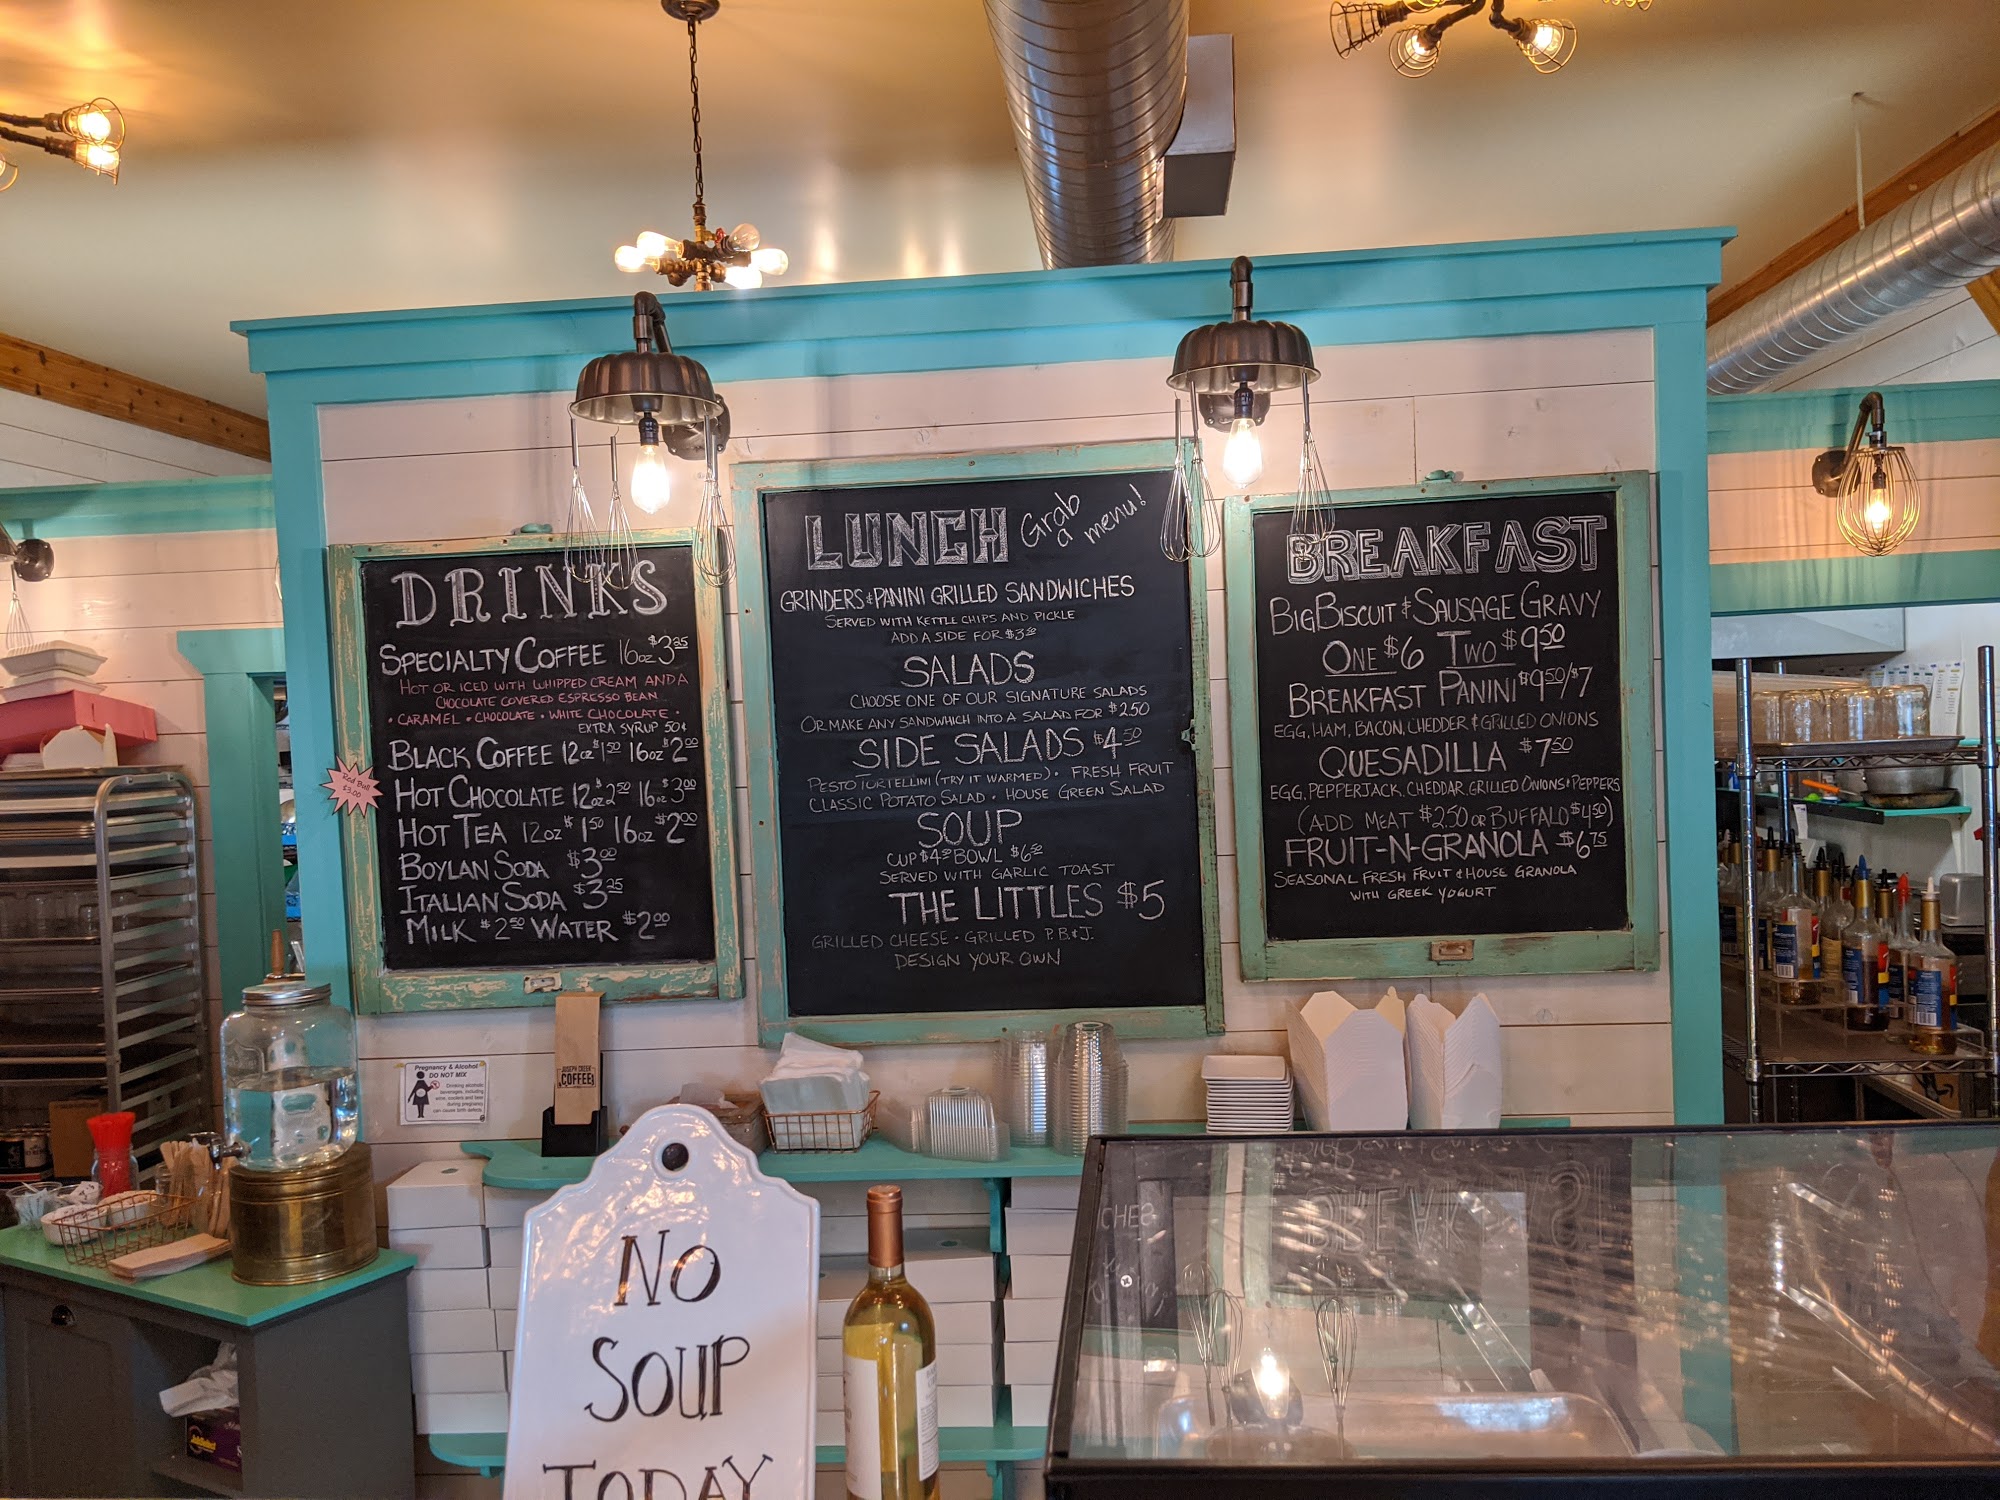 DRINKS
SPECIALTY COFFEE 16oz $3.25
HOT OR ICED WITH WHIPPED CREAM AND A
CHOCOLATE COVERED ESPRESSO BEAN
• CARAMEL • CHOCOLATE • WHITE CHOCOLATE •
EXTRA SYRUP 50¢
BLACK COFFEE 12oz $1.50 16oz $2.00
HOT CHOCOLATE 12oz $2.50 16oz $3.00
HOT TEA 12oz $1.50 16oz $2.00
BOYLAN SODA $3.00
ITALIAN SODA $3.25
MILK $2.50 WATER $2.00
Red Bull
$3.00
LUNCH Grab a menu!
GRINDERS & PANINI GRILLED SANDWICHES
SERVED WITH KETTLE CHIPS AND PICKLE
ADD A SIDE FOR
SALADS
CHOOSE ONE OF OUR SIGNATURE SALADS
OR MAKE ANY SANDWHICH INTO A SALAD FOR $2.50
SIDE SALADS $4.50
PESTO TORTELLINI (TRY IT WARMED) • FRESH FRUIT
CLASSIC POTATO SALAD • HOUSE GREEN SALAD
SOUP
CUP BOWL
SERVED WITH GARLIC TOAST
THE LITTLES $5
GRILLED CHEESE • GRILLED P.B.&J.
DESIGN YOUR OWN
BREAKFAST
BIG BISCUIT & SAUSAGE GRAVY
ONE $6 TWO $9.50
BREAKFAST PANINI $9.50/$7
EGG, HAM, BACON, CHEDDER & GRILLED ONIONS
QUESADILLA $7.50
EGG, PEPPERJACK, CHEDDAR, GRILLED ONIONS & PEPPERS
(ADD MEAT $2.50 OR BUFFALO $4.50)
FRUIT-N-GRANOLA $6.75
SEASONAL FRESH FRUIT & HOUSE GRANOLA
WITH GREEK YOGURT
Pregnancy & Alcohol
DO NOT MIX
Drinking alcoholic
beverages, including
wine, coolers and beer
during pregnancy
can cause birth defects
JOSEPH CREEK
COFFEE
NO
SOUP
TODAY